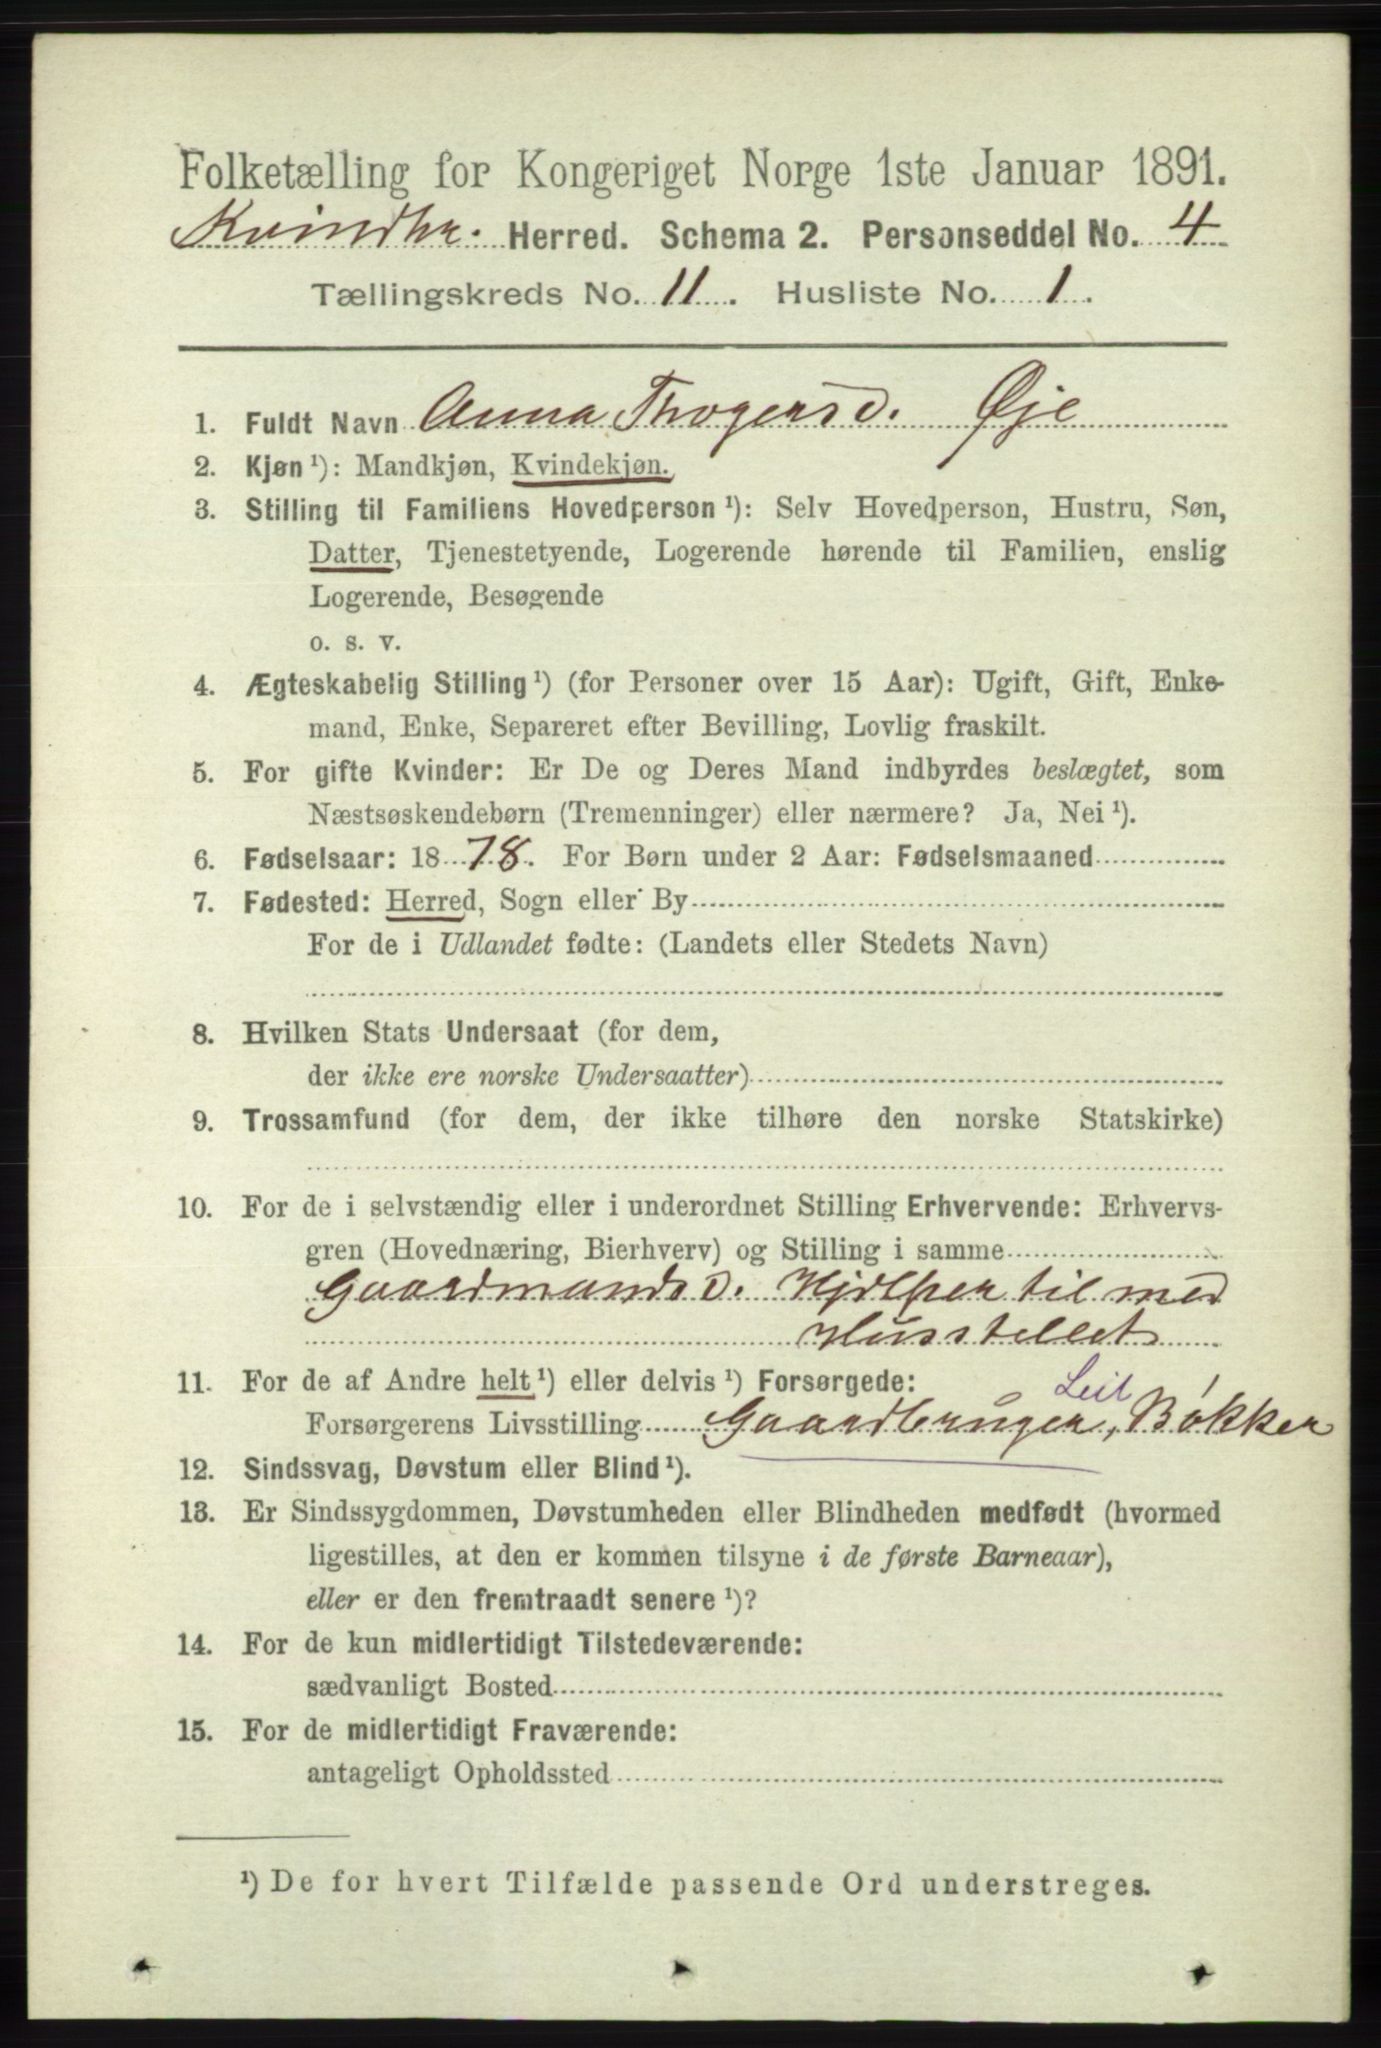 Folketælling for Kongeriget Norge 1ste Januar 1891.
Kvindhr. Herred. Schema 2. Personseddel No. 4
Tællingskreds No. 11. Husliste No. 1.
1. Fuldt Navn Anna Thogersd. Øje
2. Kjøn ¹): Mandkjøn, Kvindekjøn.
3. Stilling til Familiens Hovedperson ¹): Selv Hovedperson, Hustru, Søn,
Datter, Tjenestetyende, Logerende hørende til Familien, enslig
Logerende, Besøgende
o. s. v.
4. Ægteskabelig Stilling ¹) (for Personer over 15 Aar): Ugift, Gift, Enke-
mand, Enke, Separeret efter Bevilling, Lovlig fraskilt.
5. For gifte Kvinder: Er De og Deres Mand indbyrdes beslægtet, som
Næstsøskendebørn (Tremenninger) eller nærmere? Ja, Nei ¹).
6. Fødselsaar: 1878. For Børn under 2 Aar: Fødselsmaaned
7. Fødested: Herred, Sogn eller By
For de i Udlandet fødte: (Landets eller Stedets Navn)
8. Hvilken Stats Undersaat (for dem,
der ikke ere norske Undersaatter)
9. Trossamfund (for dem, der ikke tilhøre den norske Statskirke)
10. For de i selvstændig eller i underordnet Stilling Erhvervende: Erhvervs-
gren (Hovednæring, Bierhverv) og Stilling i samme
Gaardmandsd. Hjælper til med
Husstellet
11. For de af Andre helt ¹) eller delvis ¹) Forsørgede:
Leil
Forsørgerens Livsstilling Gaardbruger, Bøkker
12. Sindssvag, Døvstum eller Blind ¹).
13. Er Sindssygdommen, Døvstumheden eller Blindheden medfødt (hvormed
ligestilles, at den er kommen tilsyne i de første Barneaar),
eller er den fremtraadt senere ¹)?
14. For de kun midlertidigt Tilstedeværende:
sædvanligt Bosted
15. For de midlertidigt Fraværende:
antageligt Opholdssted
¹) De for hvert Tilfælde passende Ord understreges.